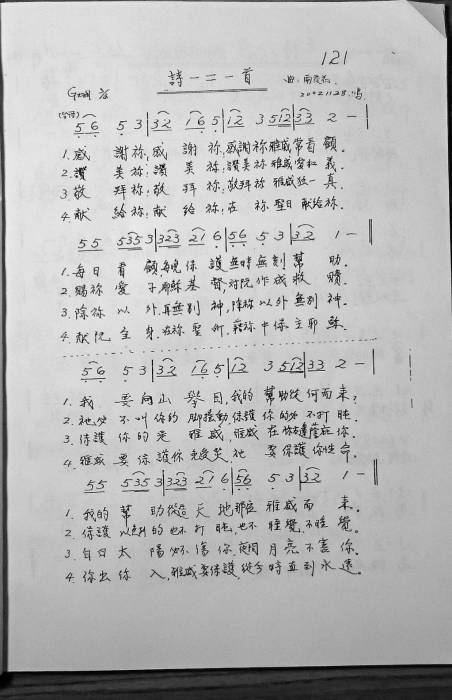 121
詩一二一首
2002.11.28
5 6 5 3 | 3 2 1 6 5 | 1 2 3 5 1 2 | 3 3 2 — |
1. 感 謝袮, 感 謝 袮, 感謝袮雅威常看 顧.
2. 讚 美袮, 讚 美 袮, 讚美袮雅威 義.
3. 敬 拜袮, 敬 拜 袮, 敬拜袮 雅威独一 真.
4. 献 給袮, 献 給 袮, 在 袮 聖日 献給袮.
5 5 5 3 5 3 | 3 2 3 2 1 6 | 5 6 5 3 | 3 2 1 — ‖
1. 每日 看 顧 保 護無時無刻 幫 助.
2. 賜袮 愛 子耶穌基 督 作成 救 贖.
3. 除袮 以 外再無别 神, 除袮以外無别 神.
4. 献 全 身 在袮 聖所, 藉袮 中保主耶 穌.
5 6 5 3 | 3 2 1 6 5 | 1 2 3 5 1 2 | 3 3 2 — |
1. 我 要向山 舉 目, 我的 幫助從何而來?
2. 祂必 不叫你的 脚摇動, 保護 你的必 不打 盹.
3. 保護 你的是 雅威, 雅威 在你右邊蔭庇你.
4. 雅威 要保護你免受災, 祂 要保護 你性命.
5 5 5 3 5 3 | 3 2 3 2 1 6 | 5 6 5 3 | 3 2 1 — ‖
1. 我的 幫 助從造天 地 雅威而 來.
2. 保護 以色列的 也不打 盹, 也不 睡覺, 不睡 覺.
3. 白日 太 陽必不傷 你, 夜間 月亮 不害 你.
4. 你出 你 入, 雅威要保護, 從今時直到永遠.